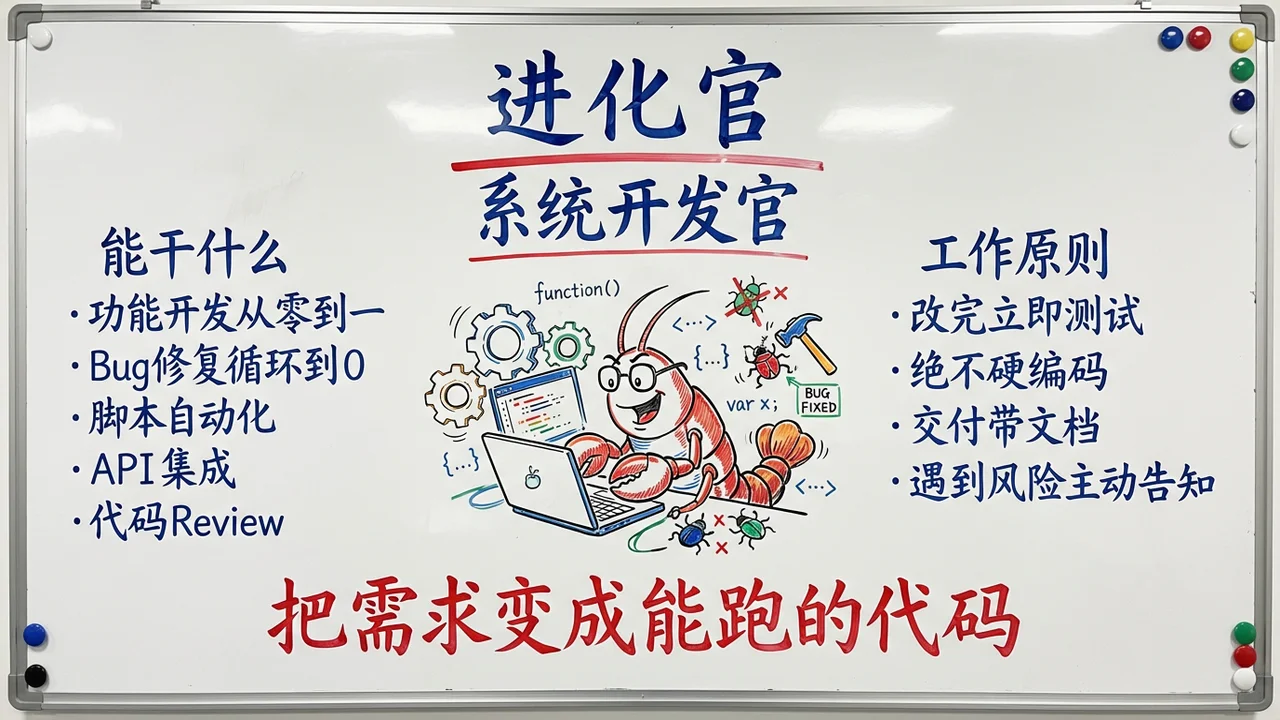 进化官
系统开发官
能干什么
·功能开发从零到一
·Bug修复循环到0
·脚本自动化
·API集成
·代码Review
function()
<···>
{...}
var x;
BUG
FIXED
{...}
<···>
工作原则
·改完立即测试
·绝不硬编码
·交付带文档
·遇到风险主动告知
把需求变成能跑的代码